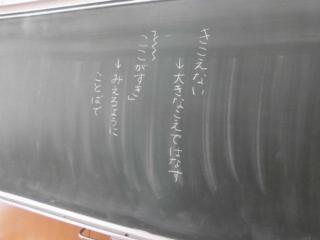 きこえない
→大きなこえではなす
「ここがすき」
→みえるように
ことばで